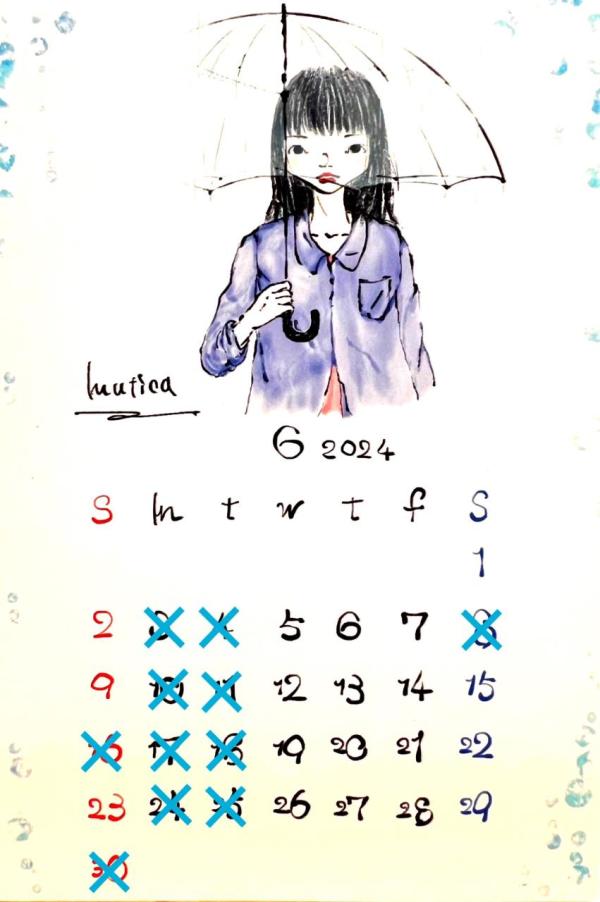 Mutica
6 2024
S m t w t f S
1
2 3 4 5 6 7 8
9 10 11 12 13 14 15
16 17 18 19 20 21 22
23 24 25 26 27 28 29
30